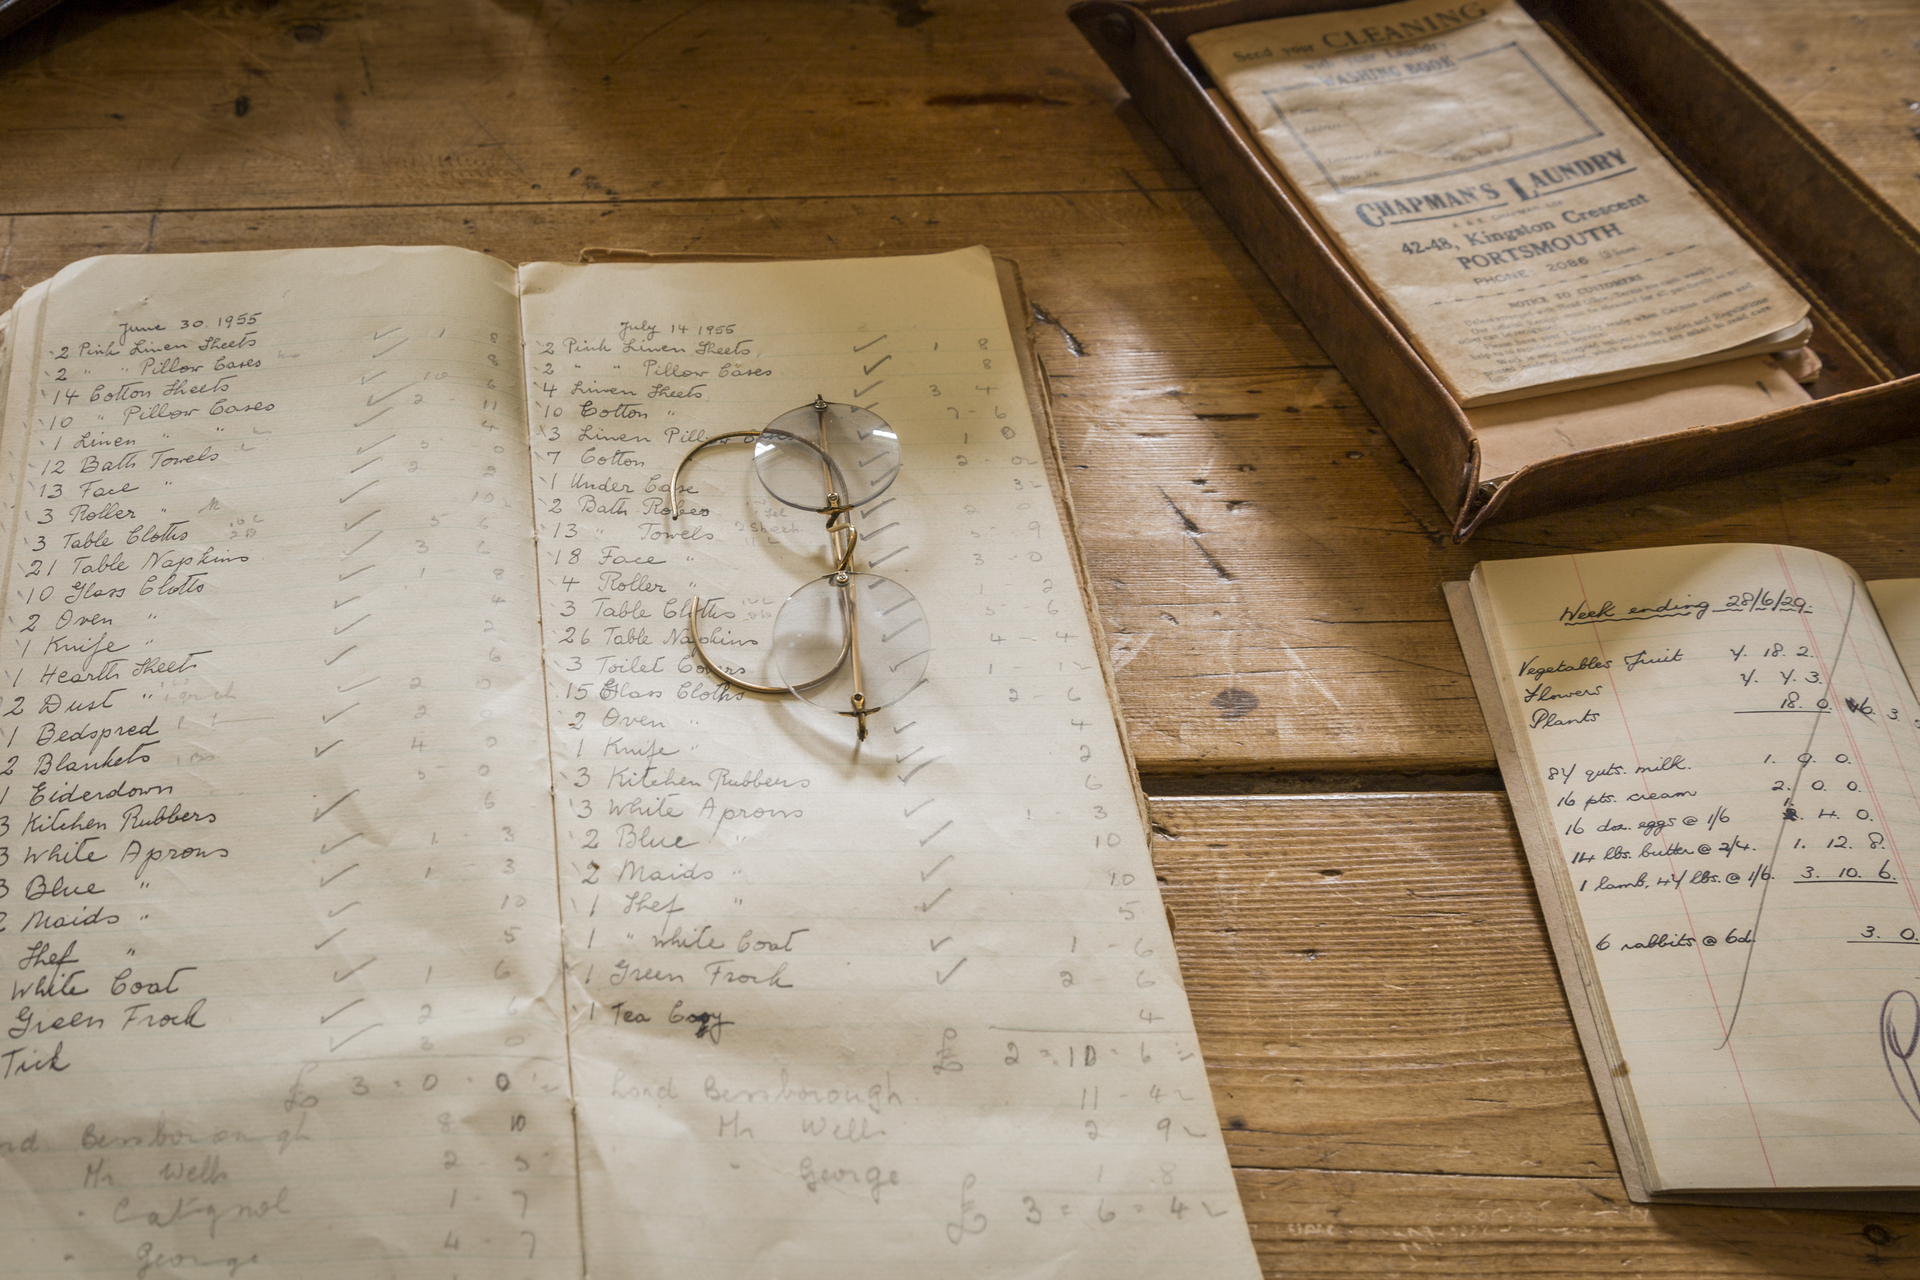 June 30. 1955
2 Pink Linen Sheets 1 8
2 " " Pillow Cases 8
14 Cotton Sheets 10 6
10 " Pillow Cases 2 - 11
1 Linen " " 4
12 Bath Towels 3 0
13 Face " 2 2
3 Roller " 10
3 Table Cloths 5 6
21 Table Napkins 3 6
10 Glass Cloths 1 - 8
2 Oven " 4
1 Knife " 2
1 Hearth Sheets 6
2 Dust " 2 0
1 Bedspred 2 0
2 Blankets 4 0
1 Eiderdown 5 - 0
3 Kitchen Rubbers 6
3 White Aprons 1 - 3
3 Blue " 1 - 3
2 Maids " 10
Shef " 5
White Coat 1 6
Green Frock 2 - 6
Tick 3 0
£ 3 = 0 = 0
Bessborough 8 10
Mr Wells 2 - 5
Catignol 1 - 7
" George 4 - 7
July 14 1955
2 Pink Linen Sheets 1 8
2 " " Pillow Cases 8
4 Linen Sheets 3 4
10 Cotton " 7 - 6
3 Linen Pillow 1 0
7 Cotton 2 - 0
1 Under Case 3
2 Bath Robes 2 0
13 " Towels 2 Sheets 3 - 9
18 Face " 3 - 0
4 Roller " 1 2
3 Table Cloths 5 - 6
26 Table Napkins 4 - 4
3 Toilet Covers 1 - 1
15 Glass Cloths 2 - 6
2 Oven " 4
1 Knife " 2
3 Kitchen Rubbers 6
3 White Aprons 1 - 3
2 Blue " 10
2 Maids " 10
1 Shef " 5
1 " White Coat 1 - 6
1 Green Frock 2 - 6
1 Tea Cosy 4
£ 2 = 10 = 6
Lord Bessborough 11 - 4
Mr Wells 2 9
" George 1 8
£ 3 = 6 = 4
Send your CLEANING
with your Laundry
WASHING BOOK
CHAPMAN'S LAUNDRY
42-48, Kingston Crescent
PORTSMOUTH
PHONE: 2086
NOTICE TO CUSTOMERS
Week ending 28/6/29.
Vegetables Fruit 4. 18. 2.
Flowers 4. 4. 3.
Plants 18. 0.
84 quts. milk. 1. 9. 0.
16 pts. cream 2. 0. 0.
16 doz. eggs @ 1/6 1. 4. 0.
14 lbs. butter @ 2/4. 1. 12. 8.
1 lamb, 47 lbs. @ 1/6. 3. 10. 6.
6 rabbits @ 6d. 3. 0.